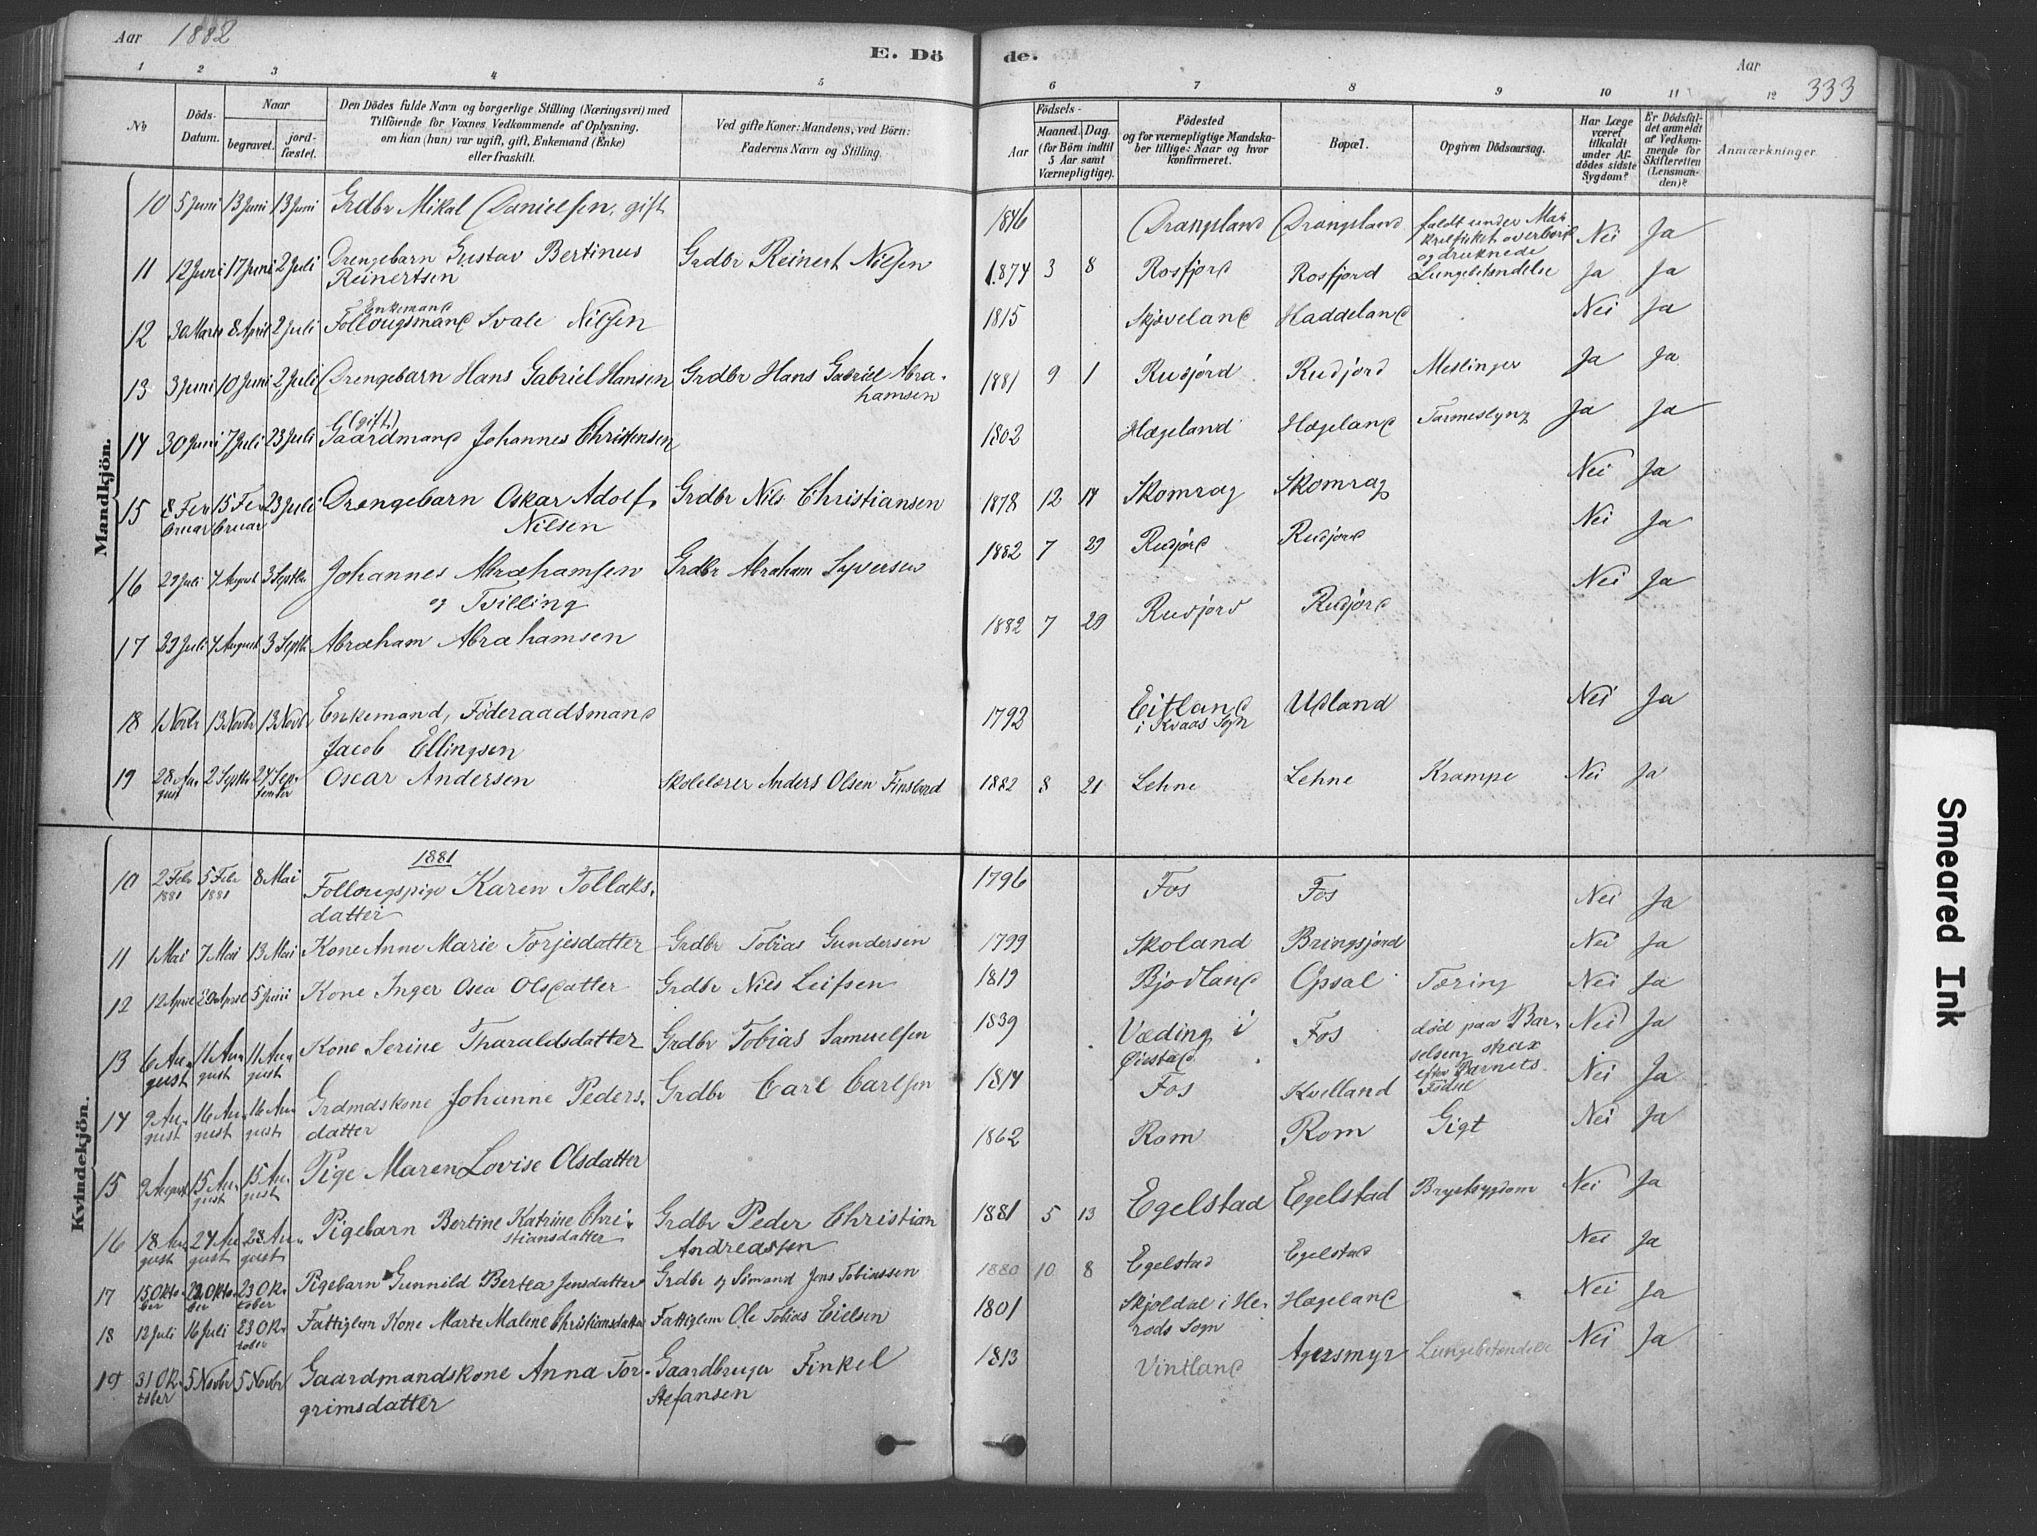 Aar 1882
E. Döde.
Aar
333
1 2 3 4 5 6 7 8 9 10 11 12
No
Döds-Datum.
Naar
begravet.
jordfæstet.
Den Dödes fulde Navn og borgerlige Stilling (Næringsvei) med
Tilföiende for Voxnes Vedkommende af Oplysning,
om han (hun) var ugift, gift, Enkemand (Enke)
eller fraskilt.
Ved gifte Koner: Mandens, ved Börn:
Faderens Navn og Stilling.
Födsels-
Aar
Maaned. Dag.
(for Børn indtil
5 Aar samt
Værnepligtige).
Födested
og for værnepligtige Mandskaber tillige: Naar og hvor
konfirmeret.
Bopæl.
Opgiven Dödsaarsag.
Har Læge
været
tilkaldt
under Afdödes sidste
Sygdom?
Er Dödsfaldet anmeldt
af Vedkommende for
Skifteretten
(Lensmanden)?
Anmærkninger
Mandkjön.
10 5 Juni 13 Juni 13 Juni Grdbr Mikal Danielsen, gift 1846 Drangsland Drangsland faldt under Makrelfisket overbord og druknede Nei Ja
11 12 Juni 17 Juni 2 Juli Drengebarn Gustav Bertinus Reinertsen Grdbr Reinert Nilsen 1874 3 8 Rosfjord Rosfjord Lungebetændelse Ja Ja
12 30 Marts 8 April 2 Juli Enkemand Follougsmand Svale Nilsen 1815 Skjoveland Haddeland Nei Ja
13 3 Juni 10 Juni 2 Juli Drengebarn Hans Gabriel Hansen Grdbr Hans Gabriel Abrahamsen 1881 9 1 Rudjord Rudjord Meslinger Ja Ja
14 30 Juni 7 Juli 23 Juli (gift) Gaardmand Johannes Christensen 1802 Hægeland Hægeland Tarmeslyng Ja Ja
15 8 Februar 15 Februar 23 Juli Drengebarn Oskar Adolf Nilsen Grdbr Nils Christiansen 1878 12 14 Skomrag Skomrag Nei Ja
16 29 Juli 4 August 3 Septbr Johannes Abrahamsen Grdbr Abraham Syversen 1882 7 29 Rudjord Rudjord Nei Ja
og Tvilling
17 29 Juli 4 August 3 Septbr Abraham Abrahamsen 1882 7 29 Rudjord Rudjord Nei Ja
18 1 Novbr 13 Novbr 13 Novbr Enkemand, Föderaadsmand Jacob Ellingsen 1792 Eitland i Kvaas Sogn Udland Nei Ja
19 28 August 2 Septbr 24 September Oscar Andersen Skolelærer Anders Olsen Finsland 1882 8 21 Lehne Lehne Krampe Nei Ja
Kvindekjön.
1881
10 2 Febr 1881 5 Febr 1881 8 Mai Follougspige Karen Tollaksdatter 1796 Fos Fos Nei Ja
11 1 Mai 7 Mai 13 Mai Kone Anne Marie Torjesdatter Grdbr Tobias Gundersen 1799 Skoland Bringsjord Nei Ja
12 12 April 20 April 5 Juni Kone Inger Osea Olsdatter Grdbr Nils Leifsen 1819 Bjodland Opsal Tæring Nei Ja
13 6 August 11 August 11 August Kone Serine Tharaldsdatter Grdbr Tobias Samuelsen 1839 Væding i Øiestad Fos död paa Barselseng strax efter Barnets Födsel Nei Ja
14 9 August 16 August 16 August Grdmdskone Johanne Pedersdatter Grdbr Carl Carlsen 1814 Fos Kvelland Nei Ja
15 9 August 15 August 15 August Pige Maren Lovise Olsdatter 1862 Rom Rom Gigt Nei Ja
16 18 August 24 August 28 August Pigebarn Bertine Katrine Christiansdatter Grdbr Peder Christian Andreassen 1881 5 13 Egelstad Egelstad Brystsygdom Nei Ja
17 15 Oktober 22 Oktober 23 Oktober Pigebarn Gunnild Bertea Jensdatter Grdbr og Sömand Jens Tobiassen 1880 10 8 Egelstad Egelstad Nei Ja
18 12 Juli 16 Juli 23 Oktober Fattiglem Kone Marte Malene Christiansdatter Fattiglem Ole Tobias Eielsen 1801 Skjoldal i Herods Sogn Hægeland Nei Ja
19 31 Oktober 5 Novbr 5 Novbr Gaardmandskone Anna Torgrimsdatter Gaardbruger Finkel Stefansen 1813 Vintland Agersmyr Lungebetændelse Nei Ja
Smeared Ink